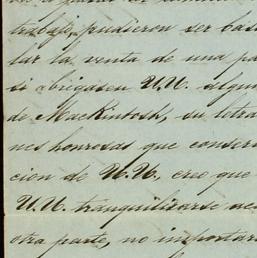 trabajo, pudieron ser bas
tar la venta de una pa
si obligasen U.U. algun
de MacKintosh, su letra
nes honrosas que conser
cion de U.U. creo que
U.U. tranquilizarse ace
otra parte, no importar